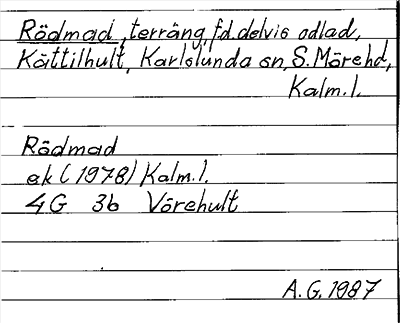 Rödmad, terräng, f.d. delvis odlad,
Kättilhult, Karlslunda sn, S. Möre hd,
Kalm. l.
Rödmad
ek (1978) Kalm. l.
4G 3b Vörehult
A.G. 1987